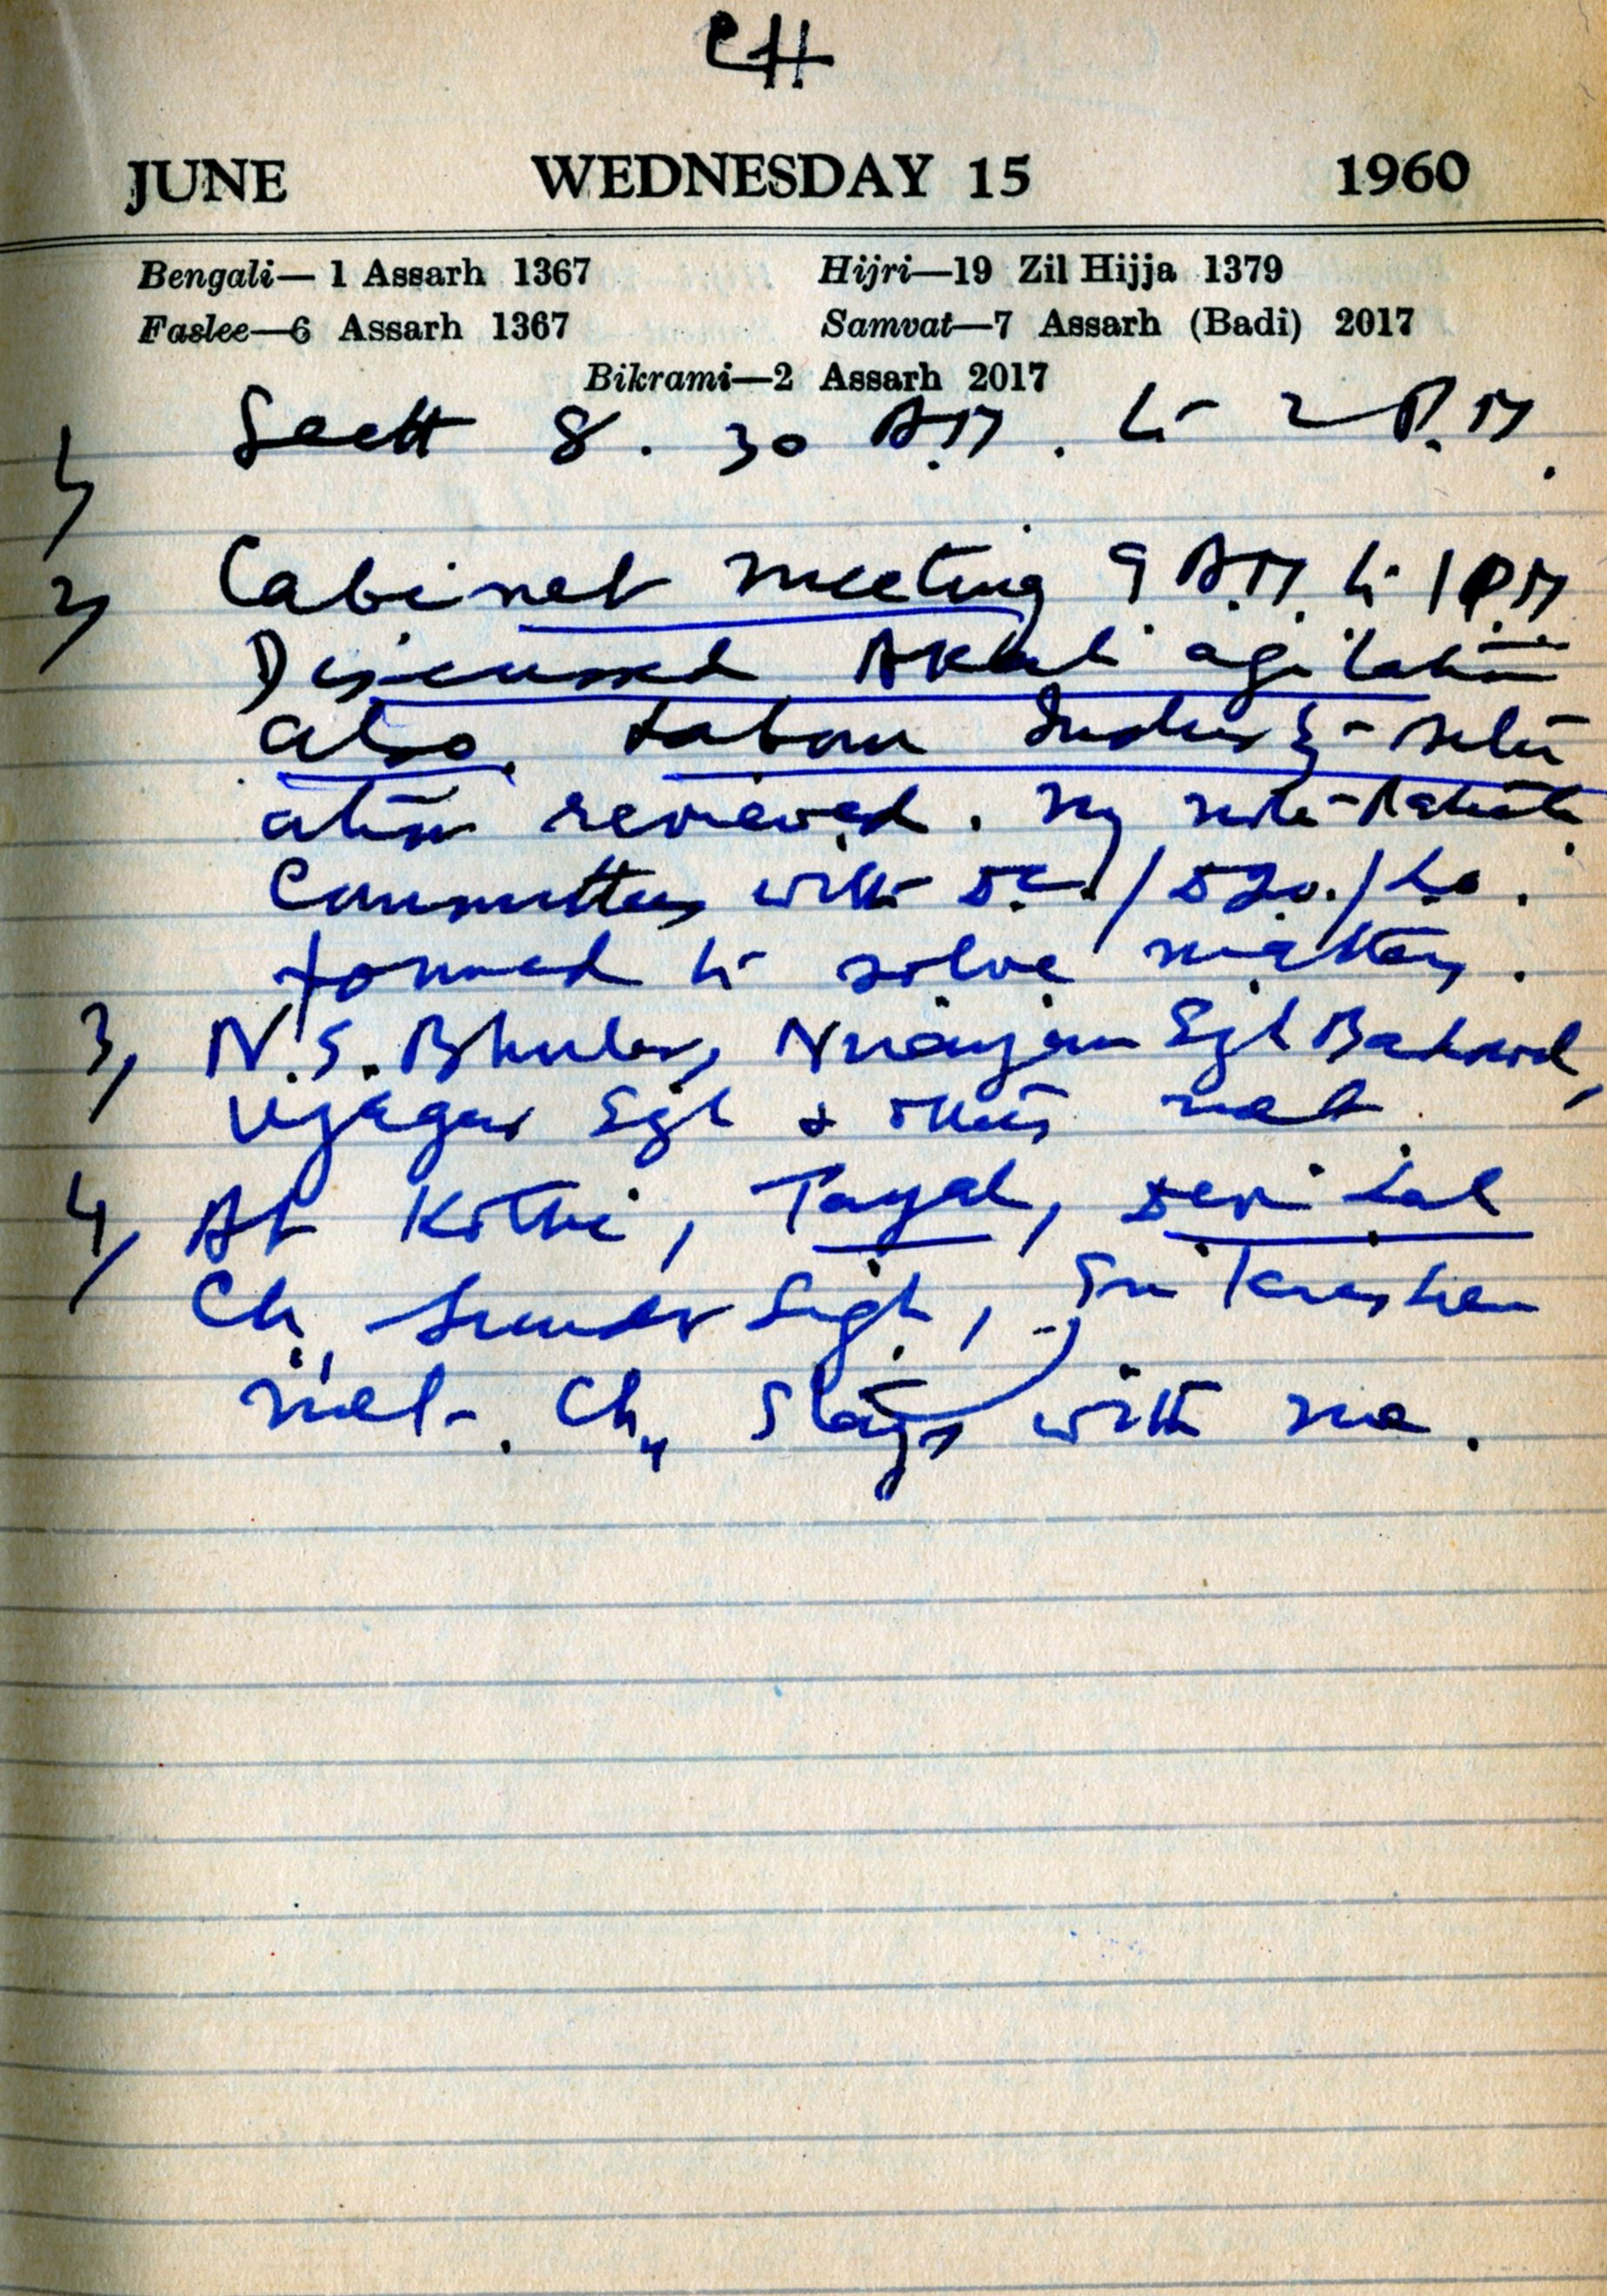 CH
JUNE WEDNESDAY 15 1960
Bengali— 1 Assarh 1367 Hijri—19 Zil Hijja 1379
Faslee—6 Assarh 1367 Samvat—7 Assarh (Badi) 2017
Bikrami—2 Assarh 2017
1, Sectt 8.30 A.M. to 2 P.M.
2, Cabinet meeting 9 A.M. to 1 P.M
Discussed Akali agitation
also. Labour Industry situ
ation reviewed. My note
Committees with D.C./D.I.O./L.O.
formed to solve matters.
3, N.S. Bhuler, Niranjan Sgh
Ujagar Sgh & others met.
4, At Kothi, Tayal, Devi Lal
Ch. Sunder Singh, Sri Krishen
met. Ch. stays with me.